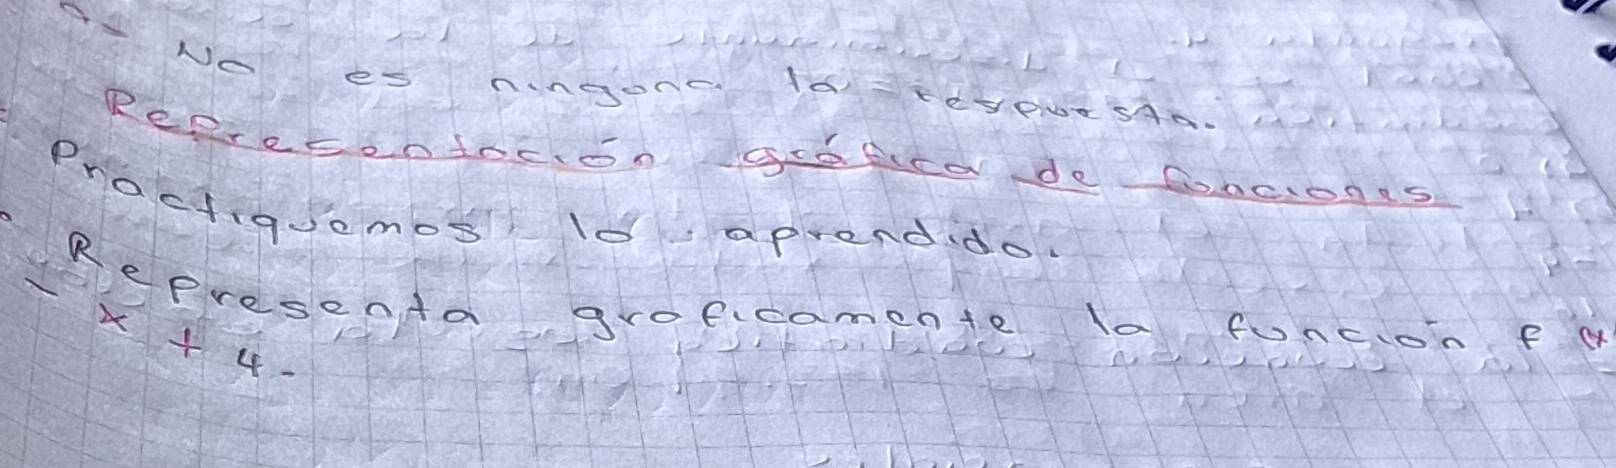 No es ninguna la respuesta.
Representación gráfica de funciones
Practiquemos lo aprendido.
Representa graficamente la función f (x
- x + 4.